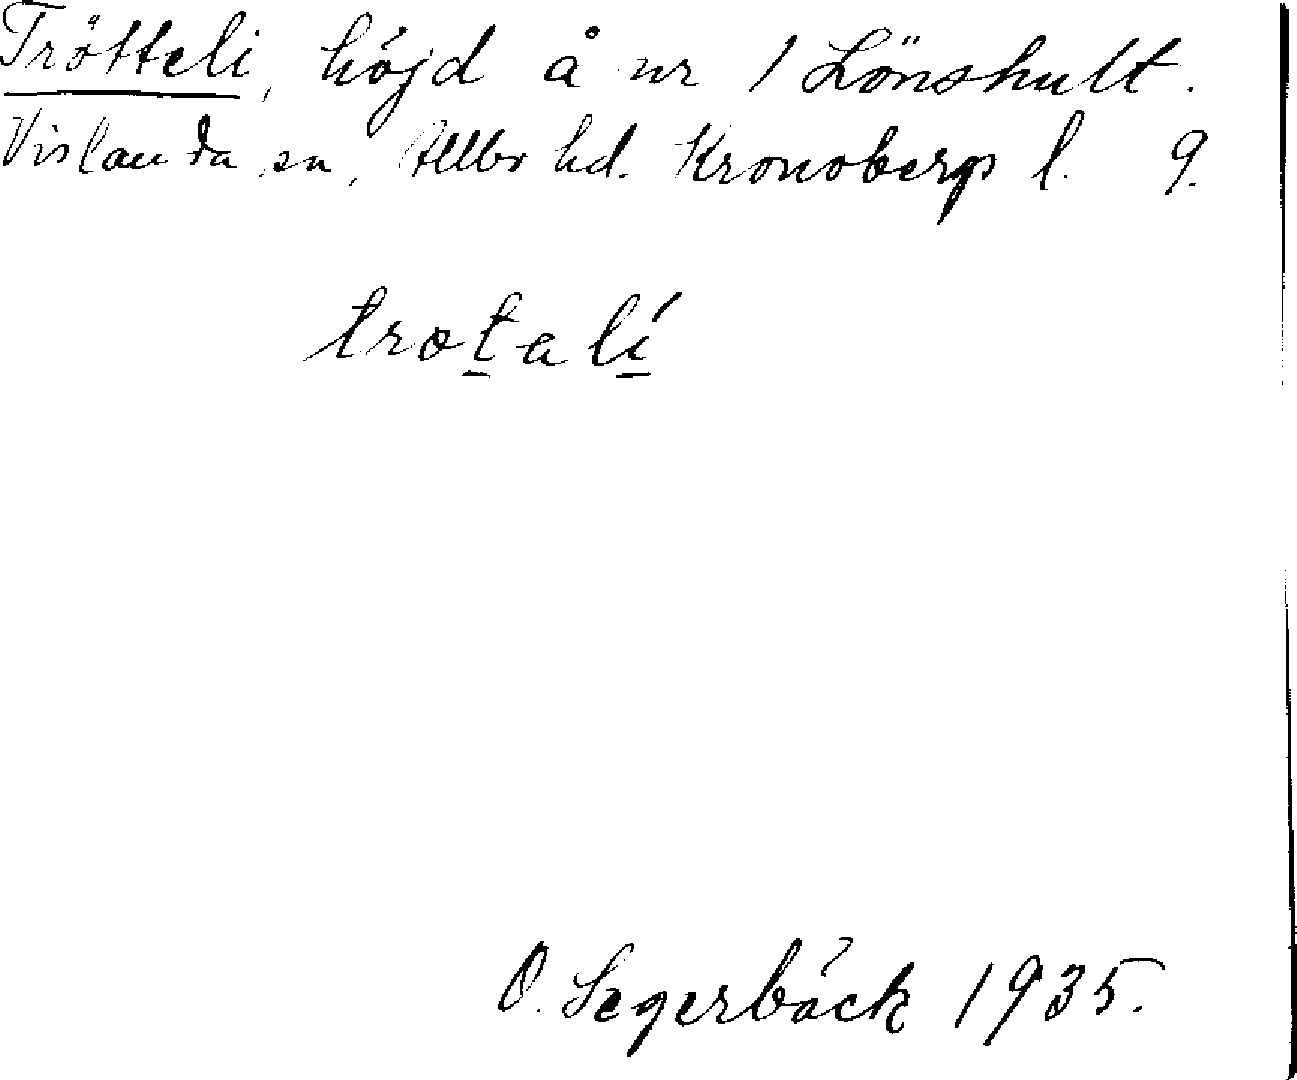 Trötteli, höjd å nr 1 Lönshult.
Vislanda sn, Allbo hd. Kronobergs l. 9.
trotalí
O. Segerbäck 1935.